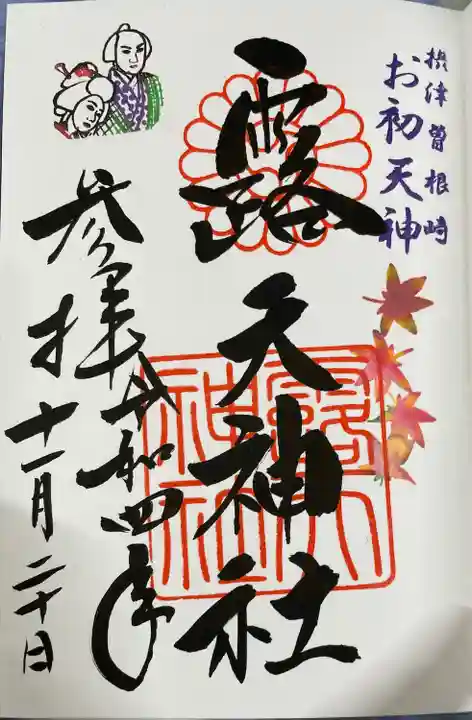 摂津曽根崎
お初天神
露天神社
令和四年
参拝
十一月二十日